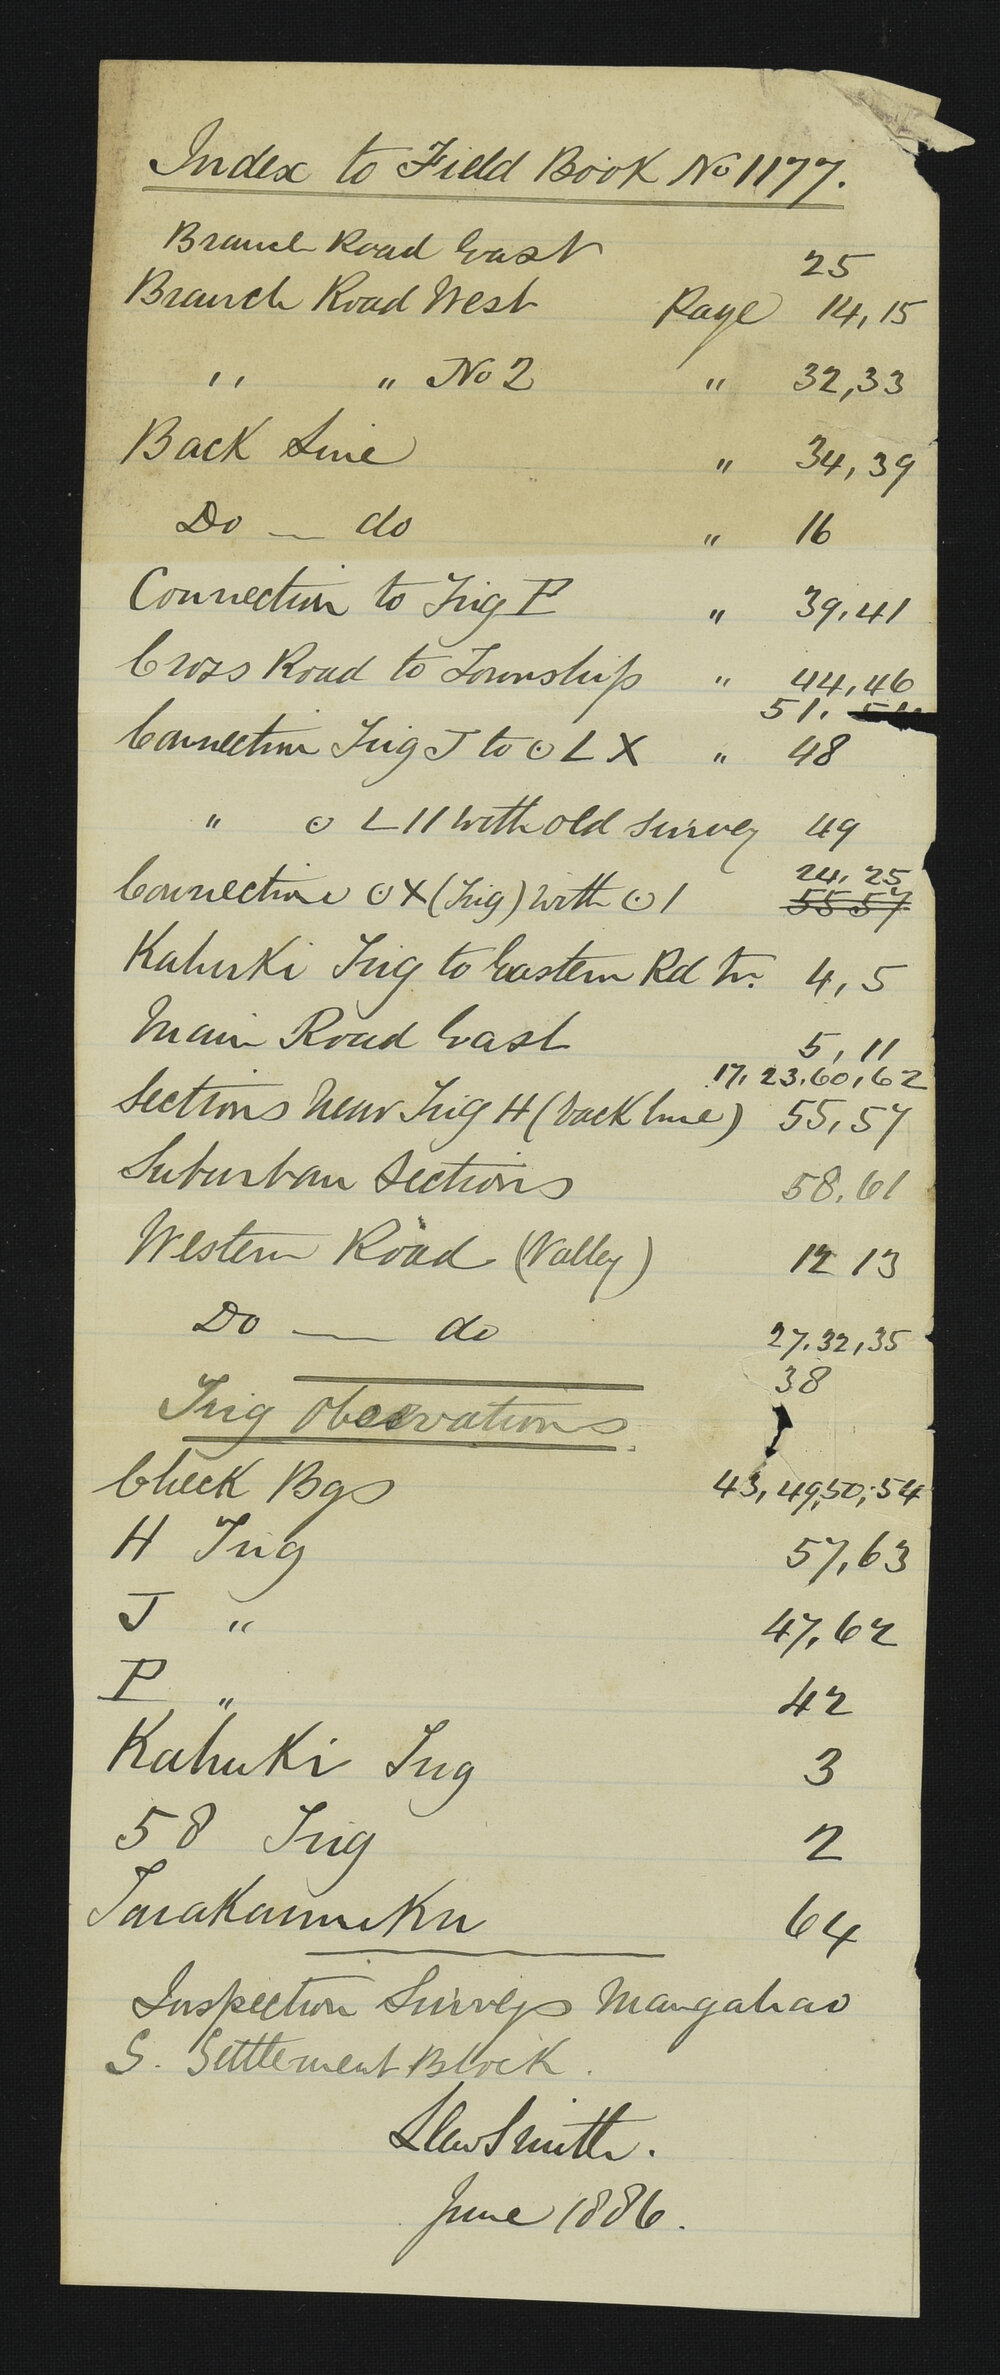 Index to Field Book No 1177.
Branch Road East 25
Branch Road West Page 14, 15
" " No 2 " 32, 33
Back Line " 34, 39
Do — do " 16
Connection to Trig P " 39, 41
Cross Road to Township " 44, 46
51,
Connection Trig J to ⊙ L X " 48
" ⊙ L 11 with old survey 49
24, 25
Connection ⊙ X (Trig) with ⊙ 1 55 57
Kahuki Trig to Eastern Rd Tr. 4, 5
Main Road East 5, 11
17, 23, 60, 62
Sections near Trig H (back line) 55, 57
Suburban Sections 58, 61
Western Road (Valley) 12 13
Do — do 27, 32, 35
38
Trig Observations.
Check Bgs 43, 49, 50, 54
H Trig 57, 63
J " 47, 62
P " 42
Kahuki Trig 3
58 Trig 2
64
Inspection Surveys Mangahao
S. Settlement Block.
Llew Smith.
June 1886.